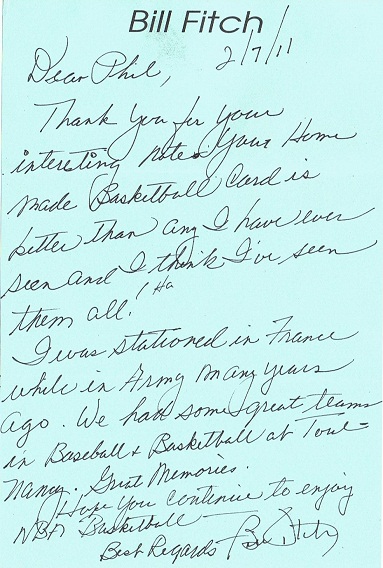 Bill Fitch
2/7/11
Dear Phil,
Thank you for your
interesting note. Your Home
made Basketball Card is
better than any I have ever
seen and I think I've seen
them all! Ha
I was stationed in France
while in Army many years
ago. We had some great teams
in Baseball & Basketball at Toul=
Nancy. Great Memories.
Hope you continue to enjoy
NBA Basketball
Best Regards Bill Fitch